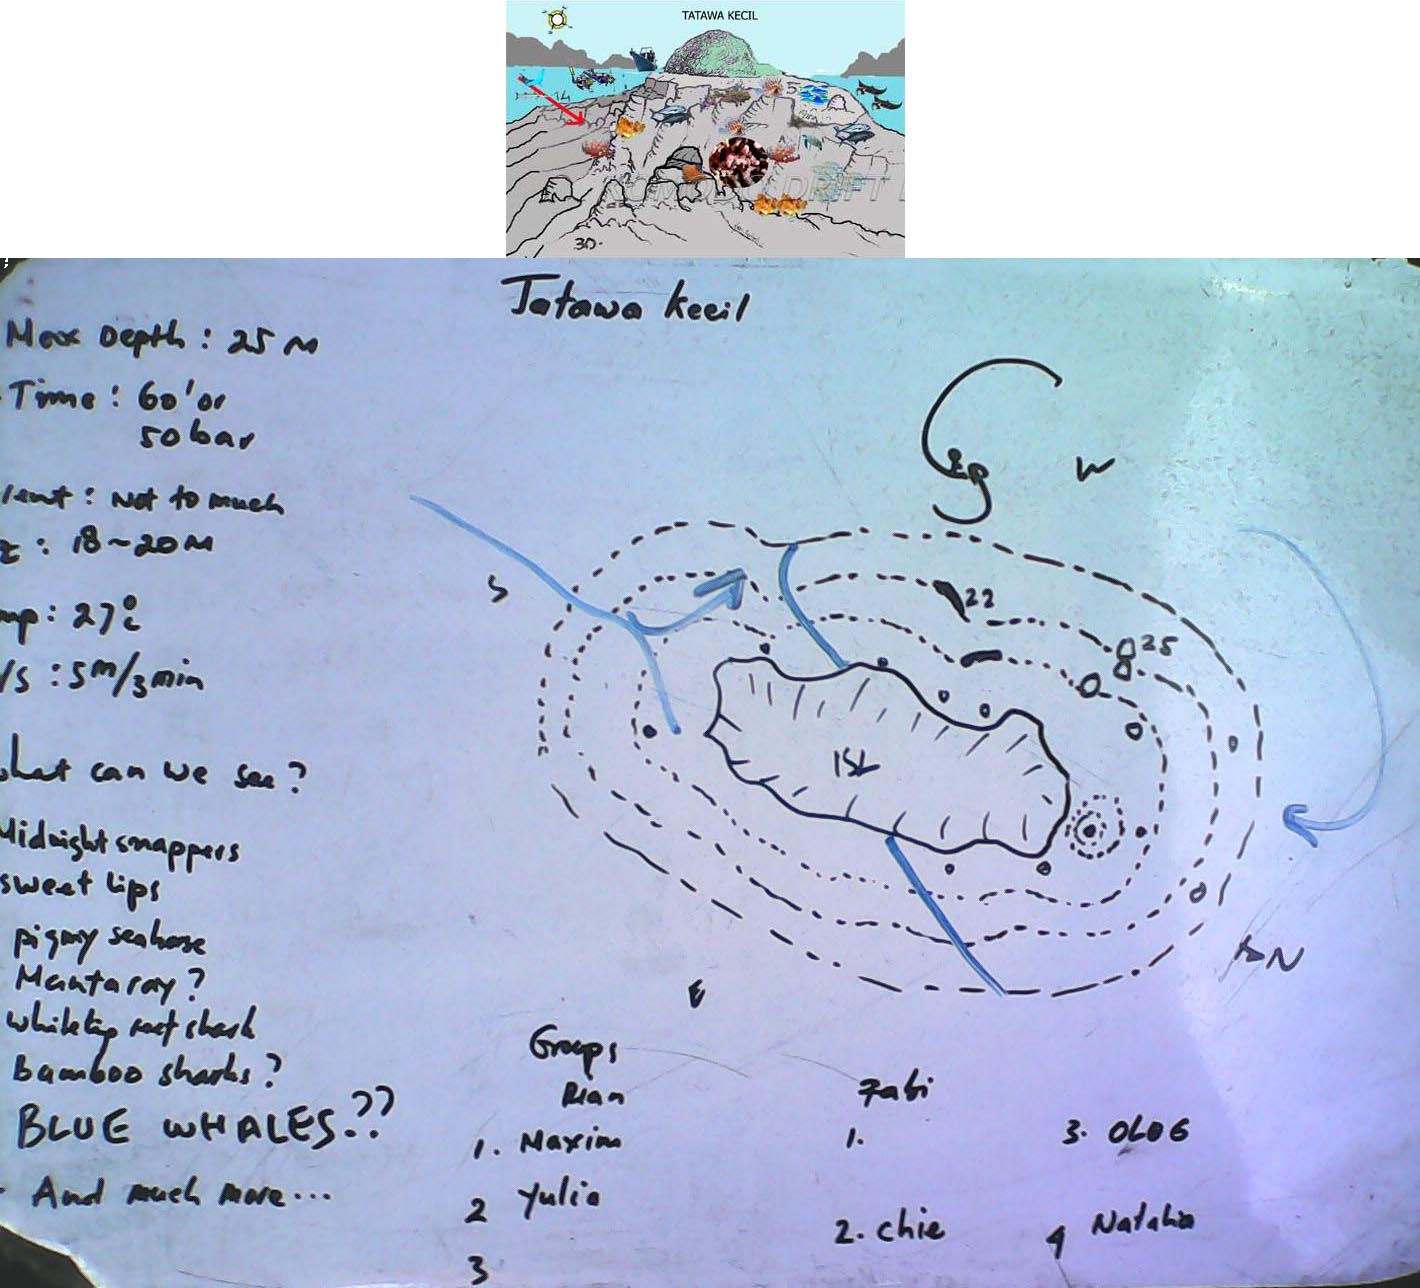 TATAWA KECIL
14
5
KOMODO DRIFT
30.
Tatawa Kecil
Max Depth : 25 M
Time : 60' or
50 bar
: Not to much
: 18~20M
: 27°c
/S : 5M/3min
what can we see?
Midnight snappers
sweet lips
pigmy seahorse
Manta ray?
whitetip reef shark
Bamboo sharks?
BLUE WHALES??
And much more...
W
S
22
25
ISL
N
E
Groups
Rian
1. Maxim
2 Yulia
3
Fabi
1.
2. Chie
3. OLOG
4 Natalia